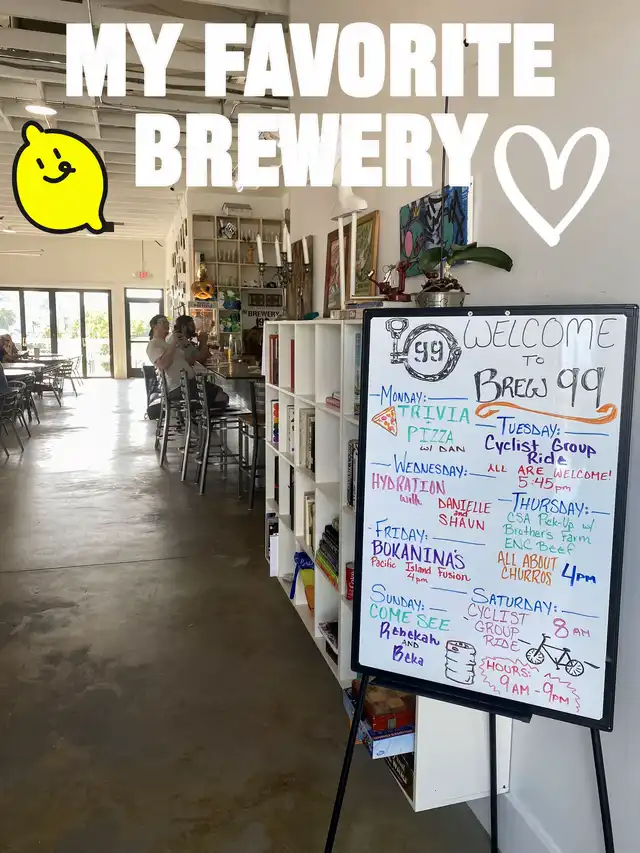 MY FAVORITE
BREWERY
BREWERY
99
WELCOME
TO
BREW 99
MONDAY:
TRIVIA
+
PIZZA
W/ DAN
TUESDAY:
Cyclist Group
Ride
ALL ARE WELCOME!
5:45pm
WEDNESDAY:
HYDRATION
with
DANIELLE
and
SHAUN
THURSDAY:
CSA Pick-Up w/
Brothers Farm
ENC Beef
ALL ABOUT
CHURROS
4pm
FRIDAY:
BOKANINA'S
Pacific Island Fusion
4pm
SUNDAY:
COME SEE
Rebekah
AND
Beka
SATURDAY:
CYCLIST
GROUP
RIDE
8 AM
HOURS:
9AM-9PM